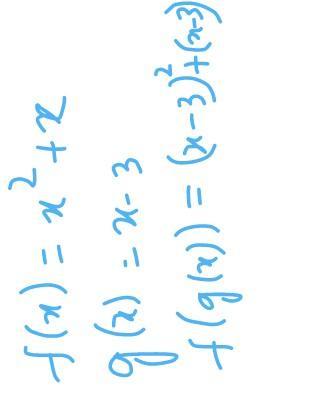 f(x) = x² + x
g(x) = x - 3
f(g(x)) = (x - 3)² + (x-3)